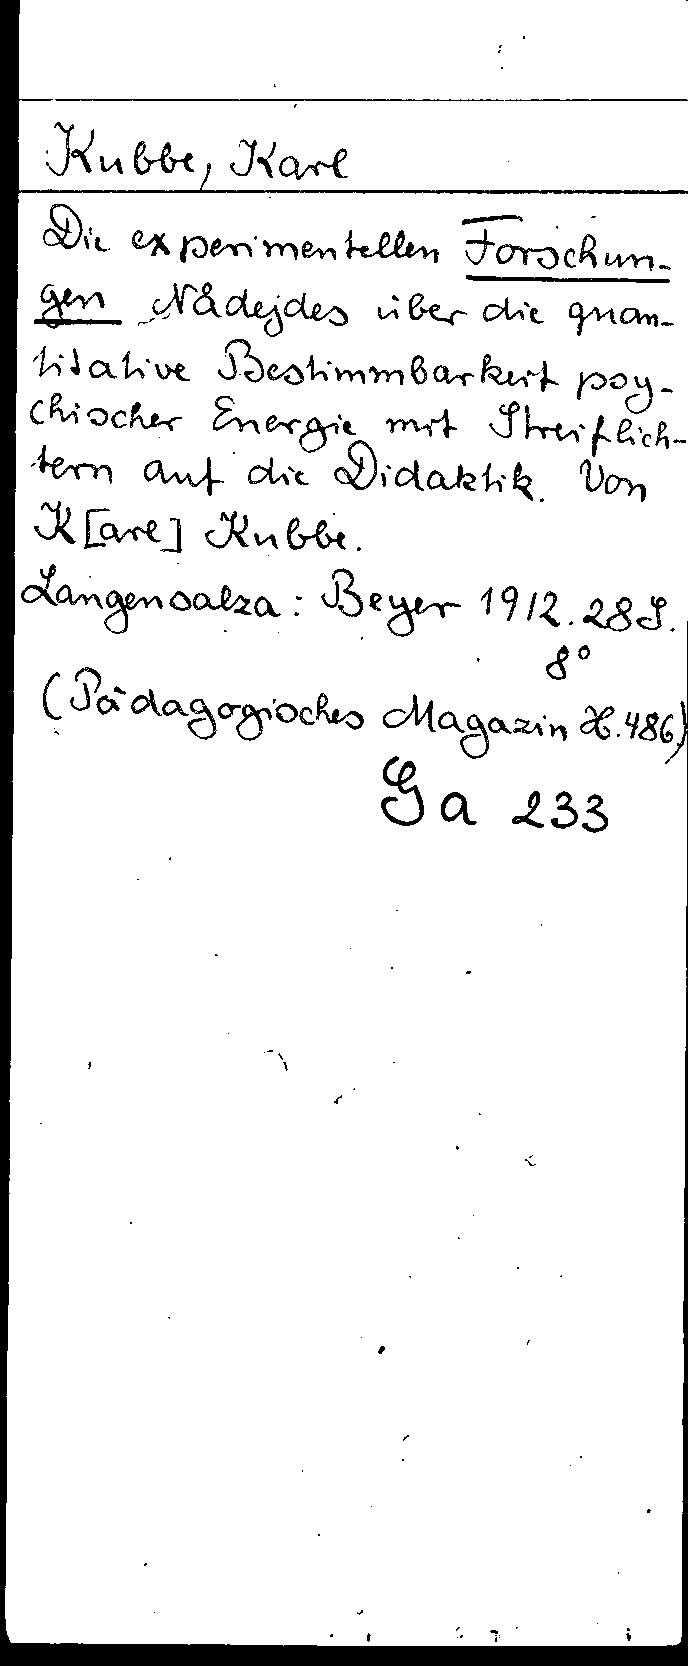 Kubbe, Karl
Die experimentellen Forschun-
gen Nådejdes über die quan-
titative Bestimmbarkeit psy-
chischer Energie mit Streiflich-
tern auf die Didaktik. Von
K[arl] Kubbe.
Langensalza: Beyer 1912. 28 S.
8°
(Pädagogisches Magazin H. 486)
Ga 233